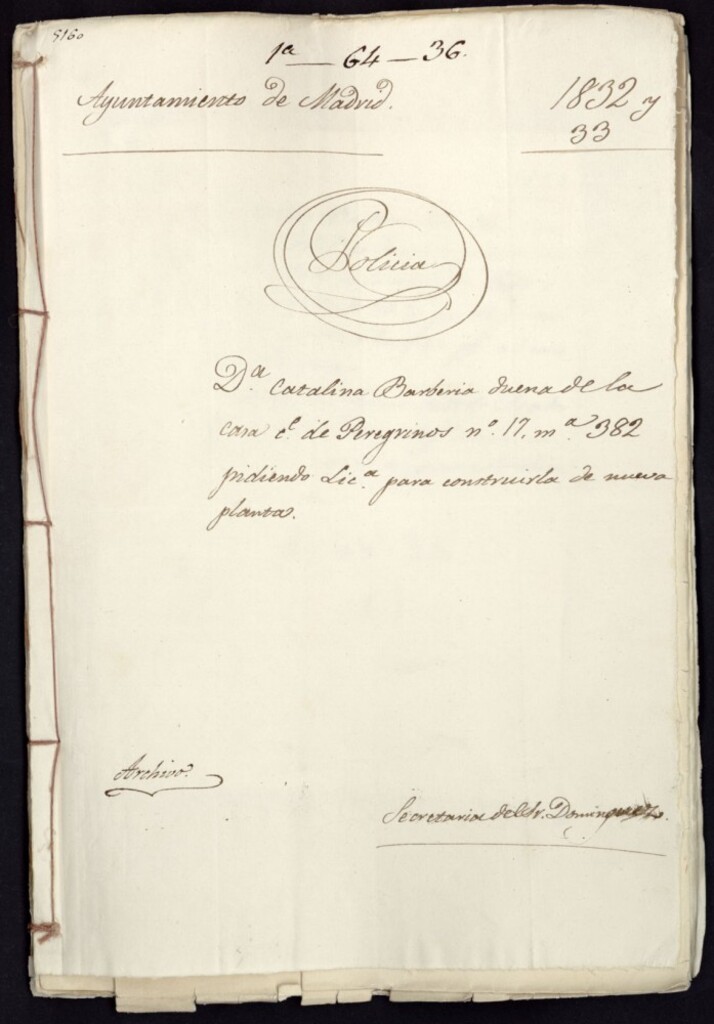 5160
1ª — 64 — 36.
Ayuntamiento de Madrid.
1832 y
33
Policia
D.ª Catalina Barberia duena de la
casa c.l de Peregrinos n.º 17, m.ª 382
pidiendo Lic.ª para construirla de nueva
planta.
Archivo.
Secretaria del Sr. Dominguez.